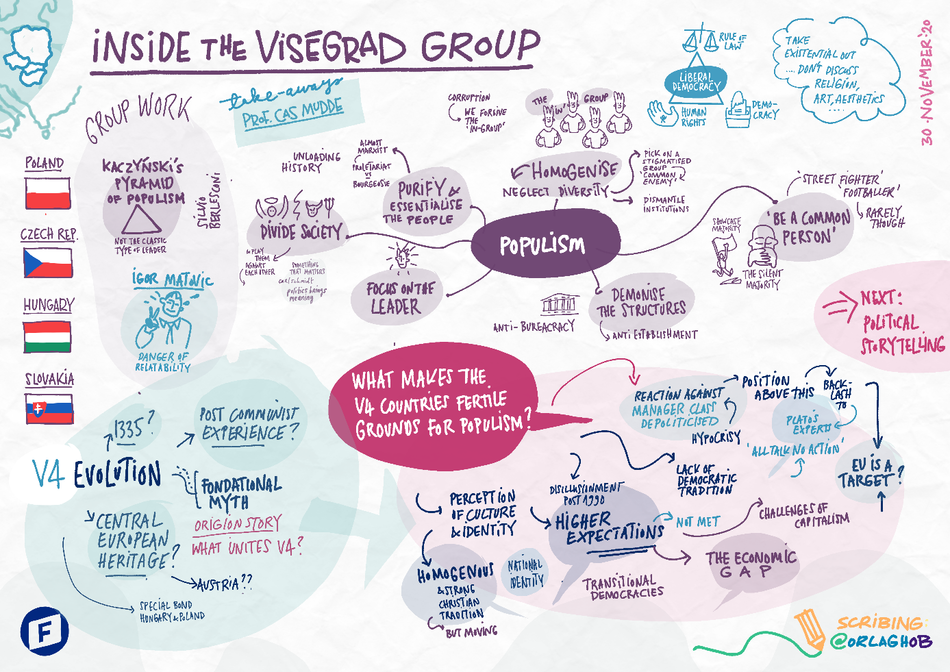 INSIDE THE VISEGRAD GROUP
30 · NOVEMBER '20
take-aways
PROF. CAS MUDDE
GROUP WORK
POLAND
CZECH REP.
HUNGARY
SLOVAKIA
KACZYŃSKI'S
PYRAMID
OF POPULISM
NOT THE CLASSIC
TYPE OF LEADER
SILVIO
BERLESCONI
IGOR MATOVIC
DANGER OF
RELATABILITY
POPULISM
PURIFY &
ESSENTIALISE
THE PEOPLE
ALMOST
MARXIST
PROLETARIAT
VS
BOURGEOISE
UNLOADING
HISTORY
DIVIDE SOCIETY
PLAY
THEM
AGAINST
EACH OTHER
SOMETHING
THAT MATTERS
carl schmidt
politics brings
meaning
FOCUS ON THE
LEADER
HOMOGENISE
NEGLECT DIVERSITY
CORRUPTION
WE FORGIVE
THE
'IN-GROUP'
THE "IN" GROUP
PICK ON A
STIGMATISED
GROUP
COMMON
ENEMY
DISMANTLE
INSTITUTIONS
RULE OF
LAW
LIBERAL
DEMOCRACY
HUMAN
RIGHTS
DEMO-
CRACY
TAKE
EXISTENTIAL OUT
.... DON'T DISCUSS
RELIGION,
ART, AESTHETICS
...
'BE A COMMON
PERSON'
'STREET FIGHTER'
FOOTBALLER'
RARELY
THOUGH
SHOWCASE
MAJORITY
THE SILENT
MAJORITY
DEMONISE
THE STRUCTURES
ANTI-BUREACRACY
ANTI ESTABLISHMENT
NEXT:
POLITICAL
STORYTELLING
WHAT MAKES THE
V4 COUNTRIES FERTILE
GROUNDS FOR POPULISM?
REACTION AGAINST
MANAGER CLASS
DEPOLITICISED
HYPOCRISY
POSITION
ABOVE THIS
BACK-
LASH
TO
PLATO'S
EXPERTS
'ALL TALK NO ACTION'
EU IS A
TARGET?
LACK OF
DEMOCRATIC
TRADITION
DISILLUSIONMENT
POST 1990
HIGHER
EXPECTATIONS
NOT MET
CHALLENGES OF
CAPITALISM
THE ECONOMIC
GAP
TRANSITIONAL
DEMOCRACIES
PERCEPTION
OF CULTURE
& IDENTITY
HOMOGENOUS
& STRONG
CHRISTIAN
TRADITION
BUT MOVING
NATIONAL
IDENTITY
V4 EVOLUTION
1335?
POST COMMUNIST
EXPERIENCE?
FONDATIONAL
MYTH
ORIGION STORY
WHAT UNITES V4?
CENTRAL
EUROPEAN
HERITAGE?
AUSTRIA??
SPECIAL BOND
HUNGARY & POLAND
F
SCRIBING:
@ORLAGHOB